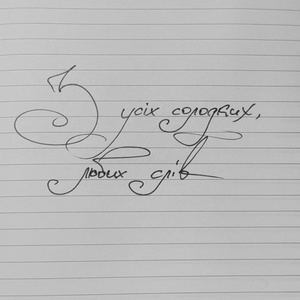 З усіх солодких,
любих слів